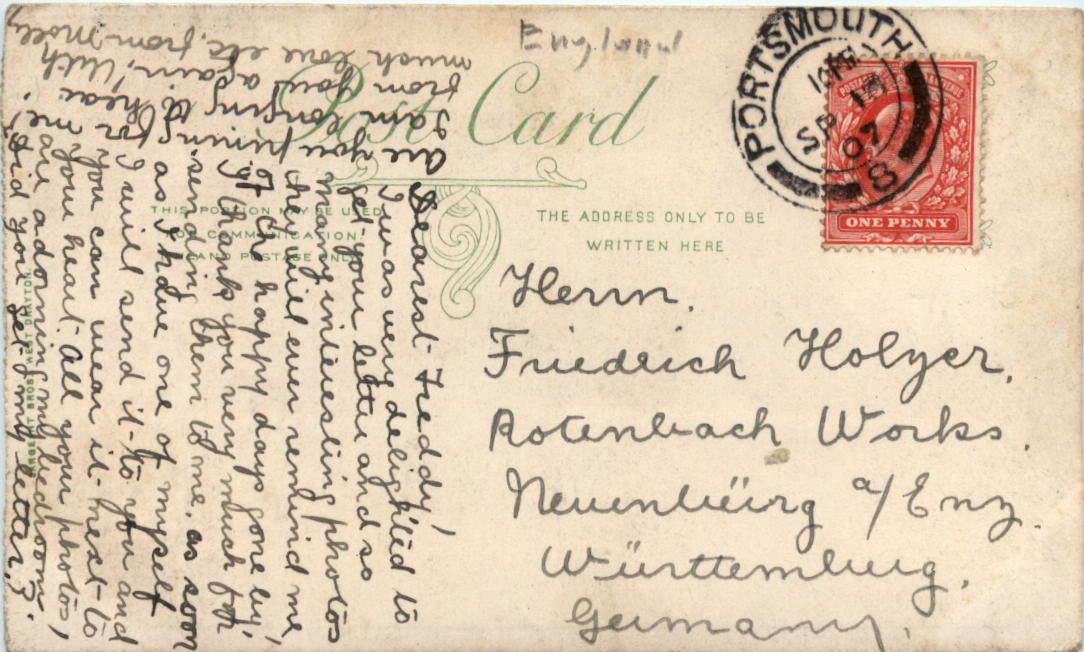 England
Post Card
THIS PORTION MAY BE USED
FOR COMMUNICATION
THE ADDRESS ONLY TO BE
WRITTEN HERE
PORTSMOUTH
SP 13
07
8
ONE PENNY
Herrn.
Friedrich Holzer,
Rotenbach Works.
Neuenbürg a/Enz.
Württemburg.
Germany.
BROS. WEST DRAYTON
Dearest Freddy,
I was very delighted to
get your letter and so
many interesting photos
they will ever remind me
of the happy days gone by,
I thank you very much for
sending them to me, as soon
as I have one of myself
I will send it to you and
you can wear it next to
your heart. All your photos,
are adorning my bedroom
Did you get my letter?
Are you pining for me?
I am longing to hear
from you again! With
much love etc, from Moll